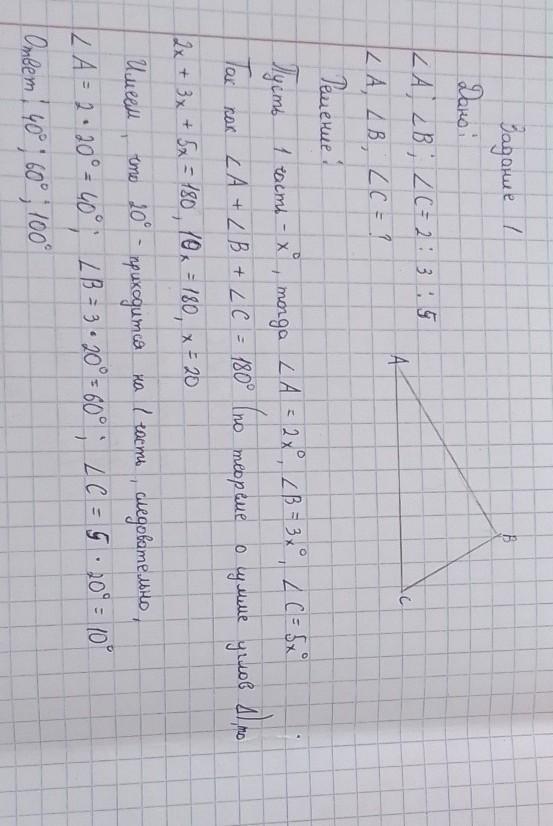 Задание 1
Дано:
∠A; ∠B; ∠C = 2 : 3 : 5
∠A, ∠B, ∠C = ?
A
B
C
Решение:
Пусть 1 часть - x°, тогда ∠A = 2x°, ∠B = 3x°, ∠C = 5x°
Так как ∠A + ∠B + ∠C = 180° (по теореме о сумме углов Δ), то
2x + 3x + 5x = 180, 10x = 180, x = 20
Имеем, что 20° - приходится на 1 часть, следовательно,
∠A = 2 · 20° = 40°; ∠B = 3 · 20° = 60°; ∠C = 5 · 20° = 10°
Ответ: 40°; 60°; 100°